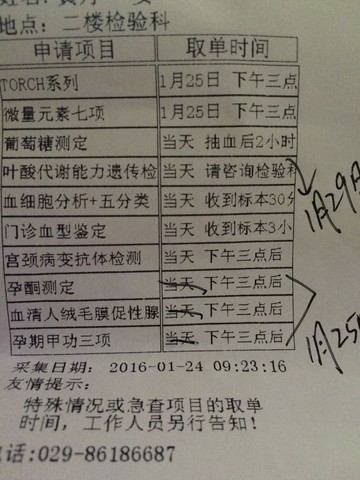 地点：二楼检验科
申请项目 取单时间
TORCH系列 1月25日 下午三点
微量元素七项 1月25日 下午三点
葡萄糖测定 当天 抽血后2小时
叶酸代谢能力遗传检 当天 请咨询检验科
血细胞分析+五分类 当天 收到标本30分
1月29日
门诊血型鉴定 当天 收到标本3小
宫颈病变抗体检测 当天 下午三点后
孕酮测定 当天 下午三点后
血清人绒毛膜促性腺 当天 下午三点后
孕期甲功三项 当天 下午三点后
1月25日
采集日期： 2016-01-24 09:23:16
友情提示：
特殊情况或急查项目的取单
时间，工作人员另行告知！
电话:029-86186687